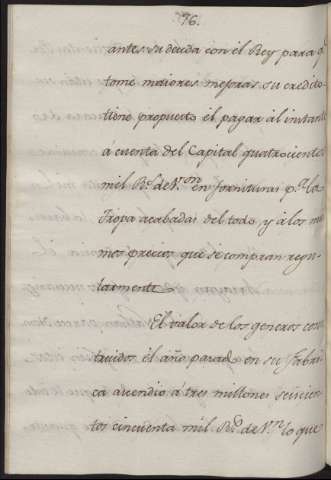 76.
antes su deuda con el Rey para q.e
tome maiores mejoras su credito
tiene propuesto el pagar al instante
á cuenta del Capital quatrocientos
mil R.s de V.on en fornituras p.a la
Tropa acabadas del todo, y á los mis
mos precios que se compran regu
larmente.
El valor de los generos cons
truidos el año pasado en su fabri
ca ascendio á tres millones seiscien
tos cincuenta mil R.s de V.n lo que